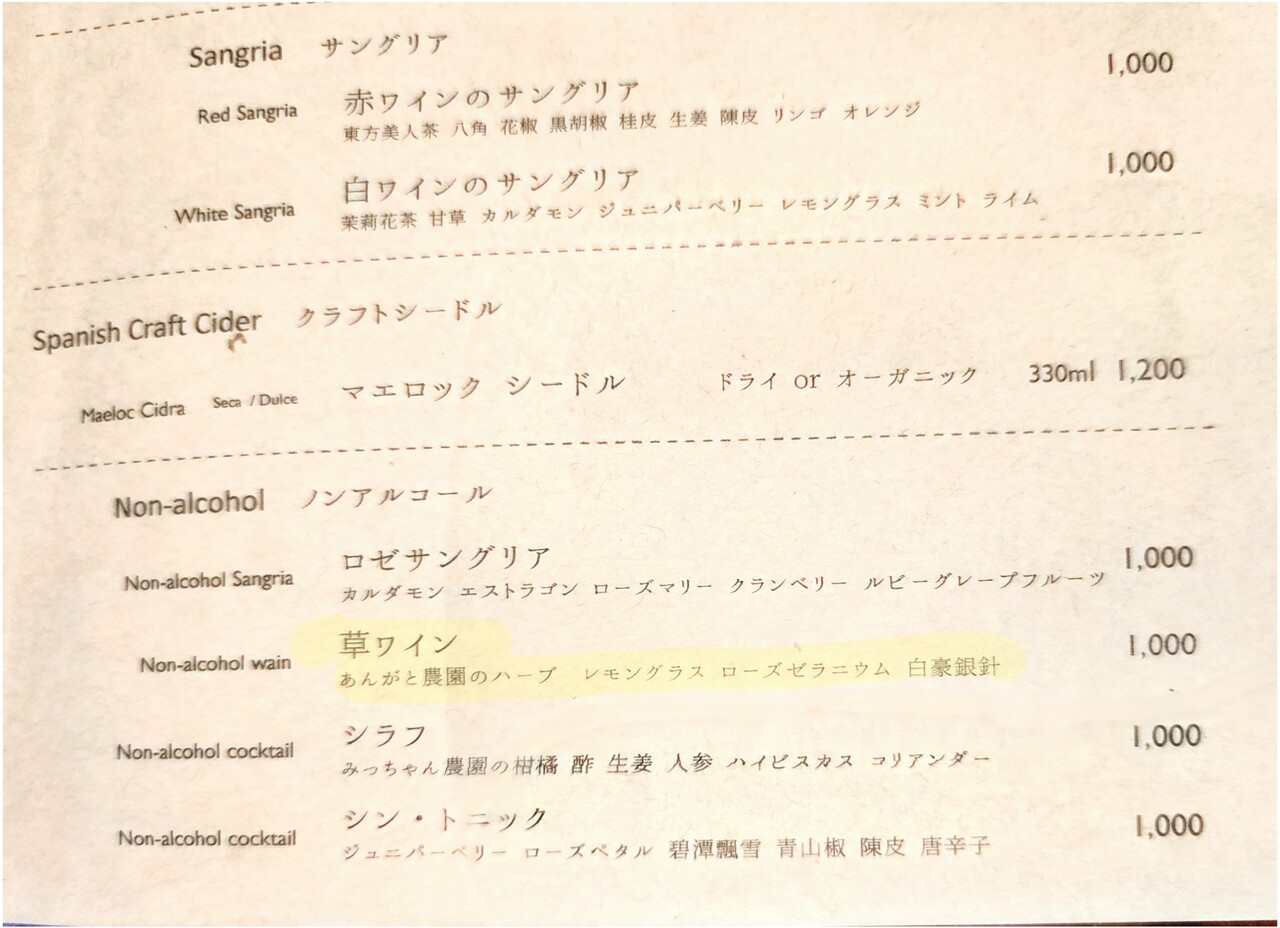 Sangria サングリア
Red Sangria 赤ワインのサングリア 1,000
東方美人茶 八角 花椒 黒胡椒 桂皮 生姜 陳皮 リンゴ オレンジ
White Sangria 白ワインのサングリア 1,000
茉莉花茶 甘草 カルダモン ジュニパーベリー レモングラス ミント ライム
Spanish Craft Cider クラフトシードル
Maeloc Cidra Seca / Dulce マエロック シードル ドライ or オーガニック 330ml 1,200
Non-alcohol ノンアルコール
Non-alcohol Sangria ロゼサングリア 1,000
カルダモン エストラゴン ローズマリー クランベリー ルビーグレープフルーツ
Non-alcohol wain 草ワイン 1,000
あんがと農園のハーブ レモングラス ローズゼラニウム 白豪銀針
Non-alcohol cocktail シラフ 1,000
みっちゃん農園の柑橘 酢 生姜 人参 ハイビスカス コリアンダー
Non-alcohol cocktail シン・トニック 1,000
ジュニパーベリー ローズペタル 碧潭飄雪 青山椒 陳皮 唐辛子